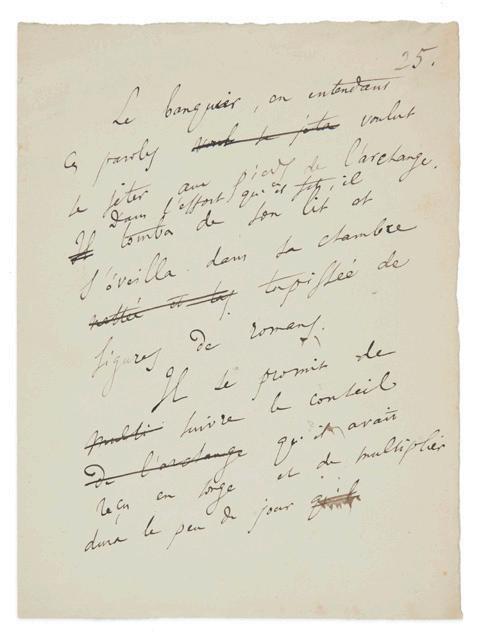 25.
Le banquier, en entendant
ces paroles voulut se jeta voulut
se jeter aux pieds de l'archange.
Dans l'effort qu'il fit, il
Il tomba de son lit et
s'éveilla dans sa chambre
nattée et tapissée de
figures de romans.
Il se promit de
multi suivre le conseil
de l'archange qu'il avait
reçu en songe et de multiplier
dans le peu de jour qu'il